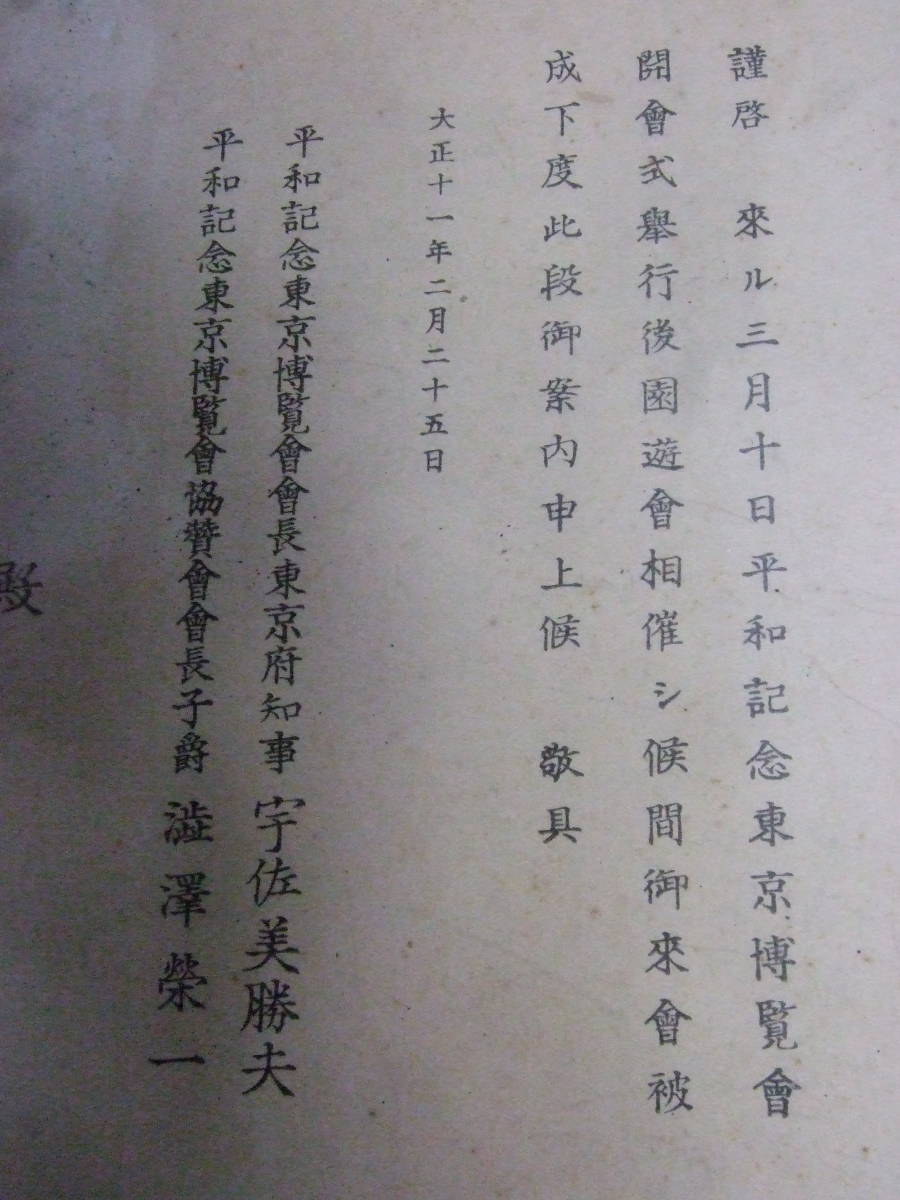 謹啓　來ル三月十日平和記念東京博覽會
開會式舉行後園遊會相催シ候間御來會被
成下度此段御案內申上候　敬具
大正十一年二月二十五日
平和記念東京博覽會會長東京府知事　宇佐美勝夫
平和記念東京博覽會協贊會會長子爵　澁澤榮一
殿